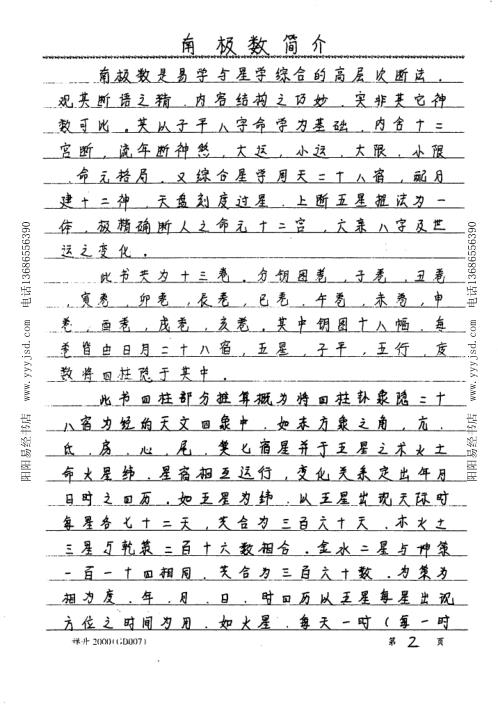 南极数简介
南极数是易学与星学综合的高层次断法.
观其断语之精.内容结构之巧妙.实非其它神
数可比。其以子平八字命学为基础.内含十二
宫断,流年断神煞,大运,小运.大限.小限
.命元格局.又综合星学周天二十八宿,配月
建十二神,天盘刻度过星.上断五星推法为一
体,极精确断人之命元十二宫,六亲八字及世
运之变化。
此书共为十三卷.分钥图卷,子卷,丑卷
,寅卷,卯卷,辰卷,巳卷.午卷,未卷,申
卷,酉卷,戌卷,亥卷。其中钥图十八幅,每
卷皆由日月二十八宿,五星,子平,五行,度
数将四柱隐于其中。
此书四柱部分推算概为将四柱卦象隐二十
八宿为经的天文四象中,如东方象之角,亢.
氐.房.心.尾.箕七宿星并于五星之木火土
命火星纬.星宿相互运行,变化关系定出年月
日时之四历.如五星为纬.以五星出现天际时
每星各七十二天,共合为三百六十天.木火土
三星与乾策二百十六数相合.金水二星与坤策
一百一十四相同.共合为三百六十数.为策为
相为度.年.月.日.时四历以五星每星出现
方位之时间为用.如火星.每天一时(每一时
祥升2000(GD007)
第2页
阳阳易经书店 www.yyyjsd.com 电话13686556390
阳阳易经书店 www.yyyjsd.com 电话13686556390